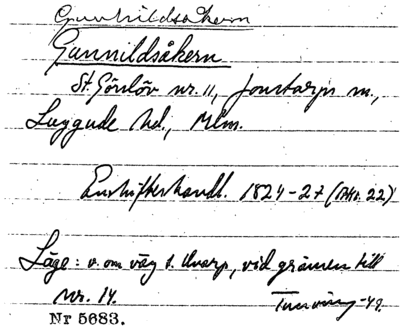 Gunnildsåkern
Gunnildsåkern
St. Görslöv nr. 11, Jonstorps sn.,
Luggude hd., Mlm.
Enskifteshandl. 1824-27 (Akt. 22)
Läge: v. om väg t. kvarn, vid gränsen till
nr. 14.
-49.
Nr 5683.